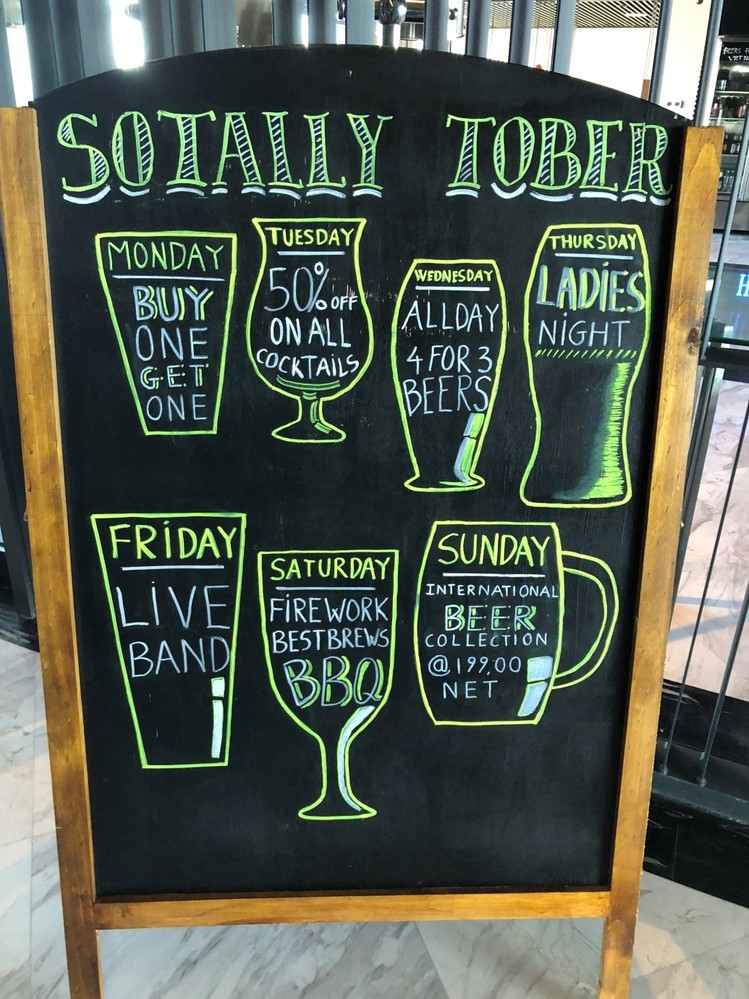 SOTALLY TOBER
MONDAY
BUY
ONE
GET
ONE
TUESDAY
50% OFF
ON ALL
COCKTAILS
WEDNESDAY
ALLDAY
4 FOR 3
BEERS
THURSDAY
LADiES
NiGHT
FRiDAY
LiVE
BAND
SATURDAY
FiREWORK
BESTBREWS
BBQ
SUNDAY
INTERNATIONAL
BEER
COLLECTION
@199,00
NET